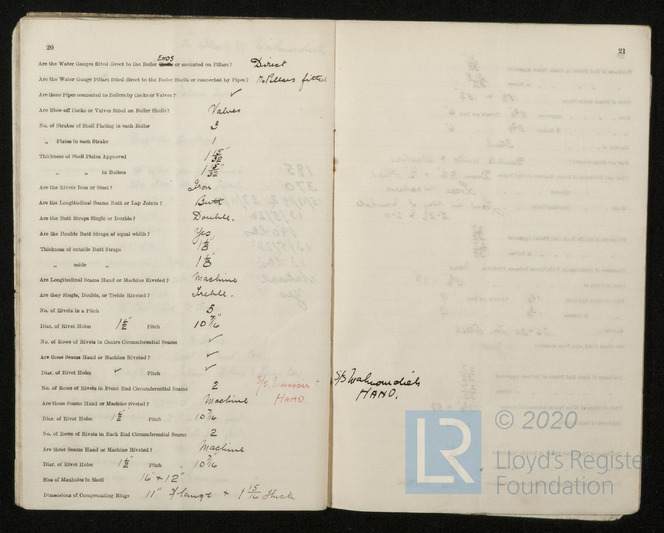 20
Are the Water Gauges fitted direct to the Boiler ENDS or mounted on Pillars? Direct
Are the Water Gauge Pillars fitted direct to the Boiler Shells or connected by Pipes? No Pillars fitted
Are these Pipes connected to Boilers by Cocks or Valves? ✓
Are Blow-off Cocks or Valves fitted on Boiler Shells? Valves
No. of Strakes of Shell Plating in each Boiler 3
„ Plates in each Strake 1
Thickness of Shell Plates Approved
„ „ in Boilers
Are the Rivets Iron or Steel? Iron
Are the Longitudinal Seams Butt or Lap Joints? Butt
Are the Butt Straps Single or Double? Double.
Are the Double Butt Straps of equal width? Yes
Thickness of outside Butt Straps 1 1/8"
„ inside „ 1 1/8"
Are Longitudinal Seams Hand or Machine Riveted? Machine
Are they Single, Double, or Treble Riveted? Treble.
No. of Rivets in a Pitch 5
Diar. of Rivet Holes 1 1/2" Pitch 10 7/16
No. of Rows of Rivets in Centre Circumferential Seams ✓
Are these Seams Hand or Machine Riveted? ✓
Diar. of Rivet Holes ✓ Pitch ✓
No. of Rows of Rivets in Front End Circumferential Seams 2
Are these Seams Hand or Machine riveted? Machine HAND
Diar. of Rivet Holes 1 1/2" Pitch 10 7/16
No. of Rows of Rivets in Back End Circumferential Seams 2
Are these Seams Hand or Machine Riveted? Machine
Diar. of Rivet Holes 1 1/2" Pitch 10 7/16
Size of Manholes in Shell 16 × 12"
Dimensions of Compensating Rings 11" Flange × 1 5/16 Thick
21
HAND.
LR
© 2020
Lloyd's Register
Foundation